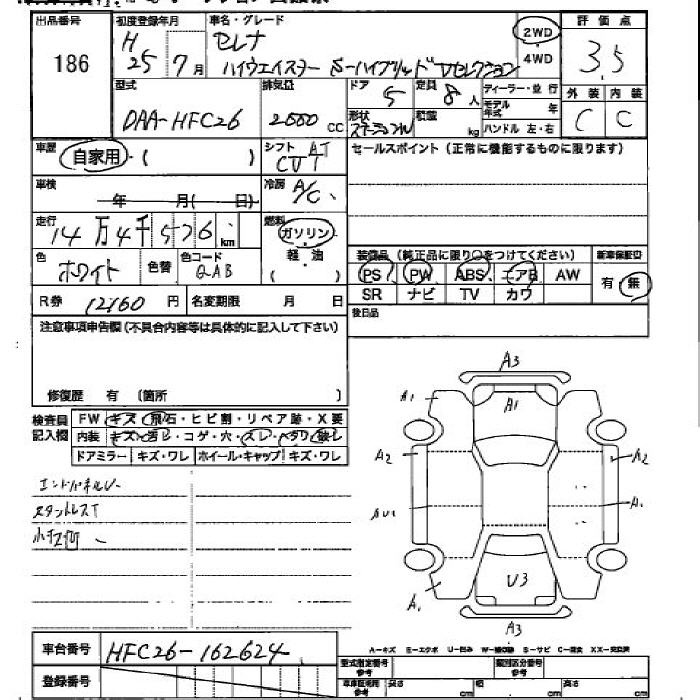 出品番号 初度登録年月 車名・グレード 評価点
186 H 25年 7月 セレナ 2WD 3.5
ハイウェイスター S-ハイブリッド Vセレクション 4WD
型式 排気量 ドア 5 定員 8人 ディーラー・並行 外装 内装
DAA-HFC26 2000 CC 形状 ステーションW 積載 kg モデル年式 年 C C
ハンドル 左・右
車歴 自家用・( ) シフト AT CVT セールスポイント (正常に機能するものに限ります)
車検 年 月( 日) 冷房 A/C
走行 14万4千576 km 燃料 ガソリン
軽・油
色 ホワイト 色替 色コード QAB ( )
装備品 (純正品に限り○をつけてください) 新車保証書
PS PW ABS エアB AW 有・無
SR ナビ TV カワ
R券 12160 円 名変期限 月 日 後日品
注意事項申告欄(不具合内容等は具体的に記入して下さい)
修復歴 有 (箇所 )
検査員記入欄 FW キズ・飛石・ヒビ割・リペア跡・X要
内装 キズ・汚レ・コゲ・穴・スレ・ヘタリ・破レ
ドアミラー キズ・ワレ ホイール・キャップ キズ・ワレ
エンドパネルU
スタントレスT
小キズ凹
A3
A1 A1
A2 A2
AU1 A1
A1 U3
A3
車台番号 HFC26-162624
A-キズ E-エクボ U-凹み W-補修跡 S-サビ C-腐食 XX-交換済
登録番号 型式指定番号 参考 類別区分番号 参考
車庫証明用 参考 長さ cm 幅 cm 高さ cm